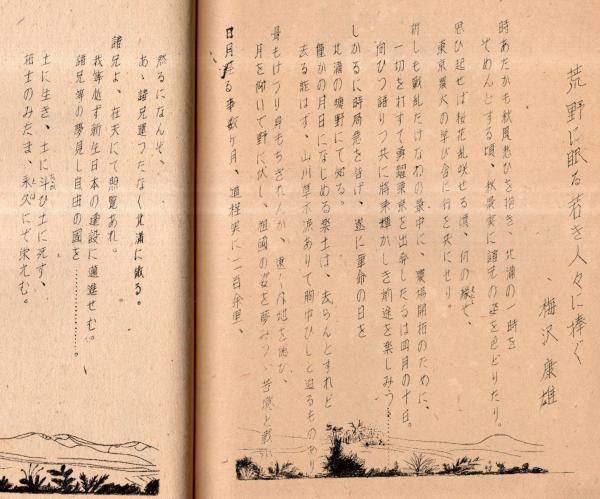 荒野に眠る若き人々に捧ぐ
梅沢康雄
時あたかも秋尾花ひを招き、北満の一時を
そめんとする頃、秋長実に諸兄の姿を色どりたり。
思ひ起せば桜花乱咲せる頃、何の縁そ、
東京農大の学び舎に行を共にせり。
折しも戦乱たけなわの最中に、農場開拓のために、
一切を打すて勇躍東京を出発したるは四月の十日。
向ひつ語りつ共に将来輝かしき前途を楽しみつゝ……
しかるに時局急を告げ、遂に運命の日を
北満の曠野にて知る。
僅かの月日になじめる楽土は、去らんとすれど
去る能はず、山川草木涙ありて胸中ひしと迫るものあり
骨もけづり身もちぎれんか、遠く地を忍び、
月を仰いで野に伏し、祖國の姿を夢みつゝ苦境と戦い
日月経る事数ケ月、道程実に二百余里、
然るになんぞ、
あゝ諸兄運つたなく北満に散る。
諸兄よ、在天にて照覧あれ。
我等必ず新生日本の建設に邁進せむ。
諸兄等の夢見し自由の國を…………。
土に生き、土に斗ひ土に死す、
拓士のみたま、永久にぞ栄光む。